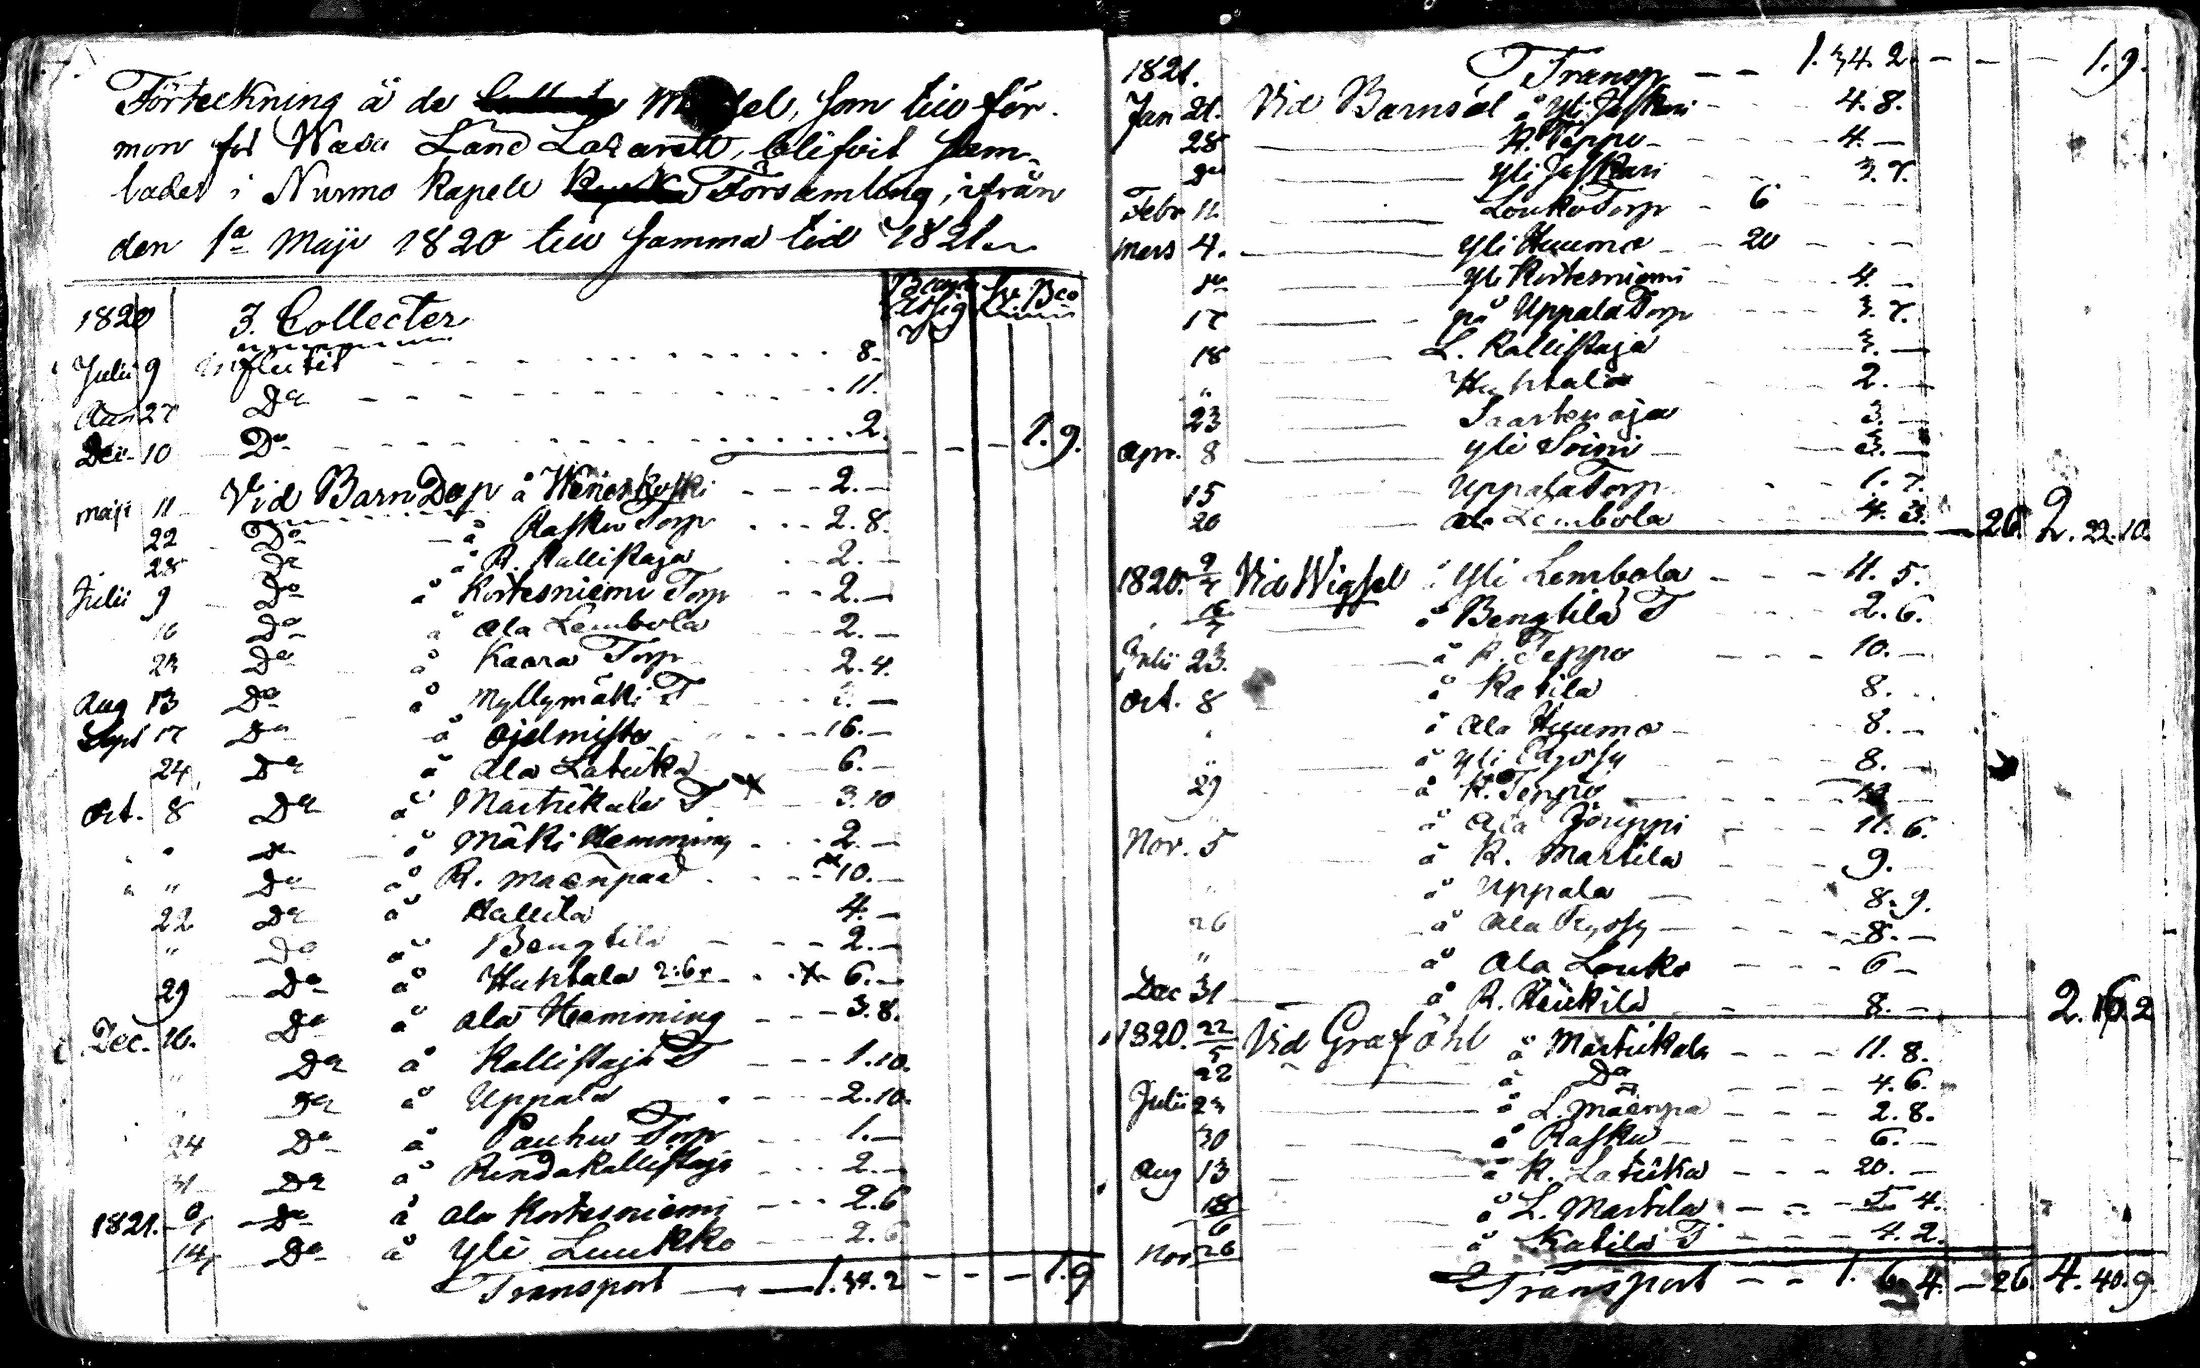 Förteckning å de Medel, som till för-
mon för Wasa Läns Lazarett, blifvit sam-
lade i Nurmo Kapell Församling, ifrån
den 1a Maji 1820 till samma tid 1821.
1820 3. Collecter Banco Assig
Julii 9 influtit 8.
Aug 27 Do 11.
Dec. 10 Do 2. 1. 9.
Maji 11 Vid BarnDop å 2.—
22 Do å Rasku Torp 2. 8.
28 Do å R. Kallistaja 2.—
Julii 9 Do å Kortesniemi Torp 2.—
16 Do å Ala Lembola 2.—
23 Do å Kaara Torp 2. 4.
Aug 13 Do å Myllymäki T —
Sept 17 Do å Ojelmisto 16.—
24 Do å Ala Latukka 6.—
Oct. 8 Do å T 3. 10
" " Do å Mäki Hemming 2.—
" " Do å R. Mäenpää 10.—
22 Do å Hallila 4.—
" Do å Bengtila 2.—
29 Do å Huhtala 6.—
Dec. 10. Do å Ala Hemming 3. 8.
" Do å Kallistaja T 1. 10.
" Do å Uppala 2. 10.
24 Do å Pauhu Torp 1.—
31 Do å Rinda Kallistaja 2.—
1821. 6/1 Do å Ala Kortesniemi 2. 6
14 Do å Yli Luukko 2. 6
Transport 1. 34. 2 1. 9
1821. Transp 1. 34. 2. 1. 9.
Jan 21. Vid Barnsöl å Yli Jaskari 4. 8.
28 R. Teppo 4.—
Do Yli Jaskari 3. 7.
Febr 11. Louko Torp 6
Mars 4. Yli Huumo 20
Do Yli Kortesniemi 4.—
17 på Uppala Torp 3. 7.
18 L. Kallistaja 3.—
" Huhtala 2.—
23 Saarkenoja 3.—
Apr. 8 Yli Soini 3.—
15 Uppala Torp 1. 7.
20 Ala Lembola 4. 3. 26. 2. 22. 10.
1820. Vid Wigsel i Yli Lembola 11. 5.
å Bengtila T 2. 6.
Julii 23. å R. Teppo 10.—
Oct. 8 å Katila 8.
å Ala Huumo 8.—
" å Yli 8.—
29 å R. Teppo —
" å Ala Jouppi 11. 6.
Nov. 5 å R. Martila 9.
" å Uppala 8. 9.
26 å Ala 8.—
" å Ala Louko 6—
Dec 31 å R. Heikkilä 8.— 2. 16. 2
1820. 22/5 Vid Graföhl å Martikala 11. 8.
22 å Do 4. 6.
Julii 23 å L. Mäenpä 2. 8.
30 å Rasku 6.—
Aug 13 å R. Latukka 20.—
å L. Martila 5. 4.
Nov 26 å Katila T 4. 2.
Transport 1. 6. 4. — 26. 4. 40. 9.